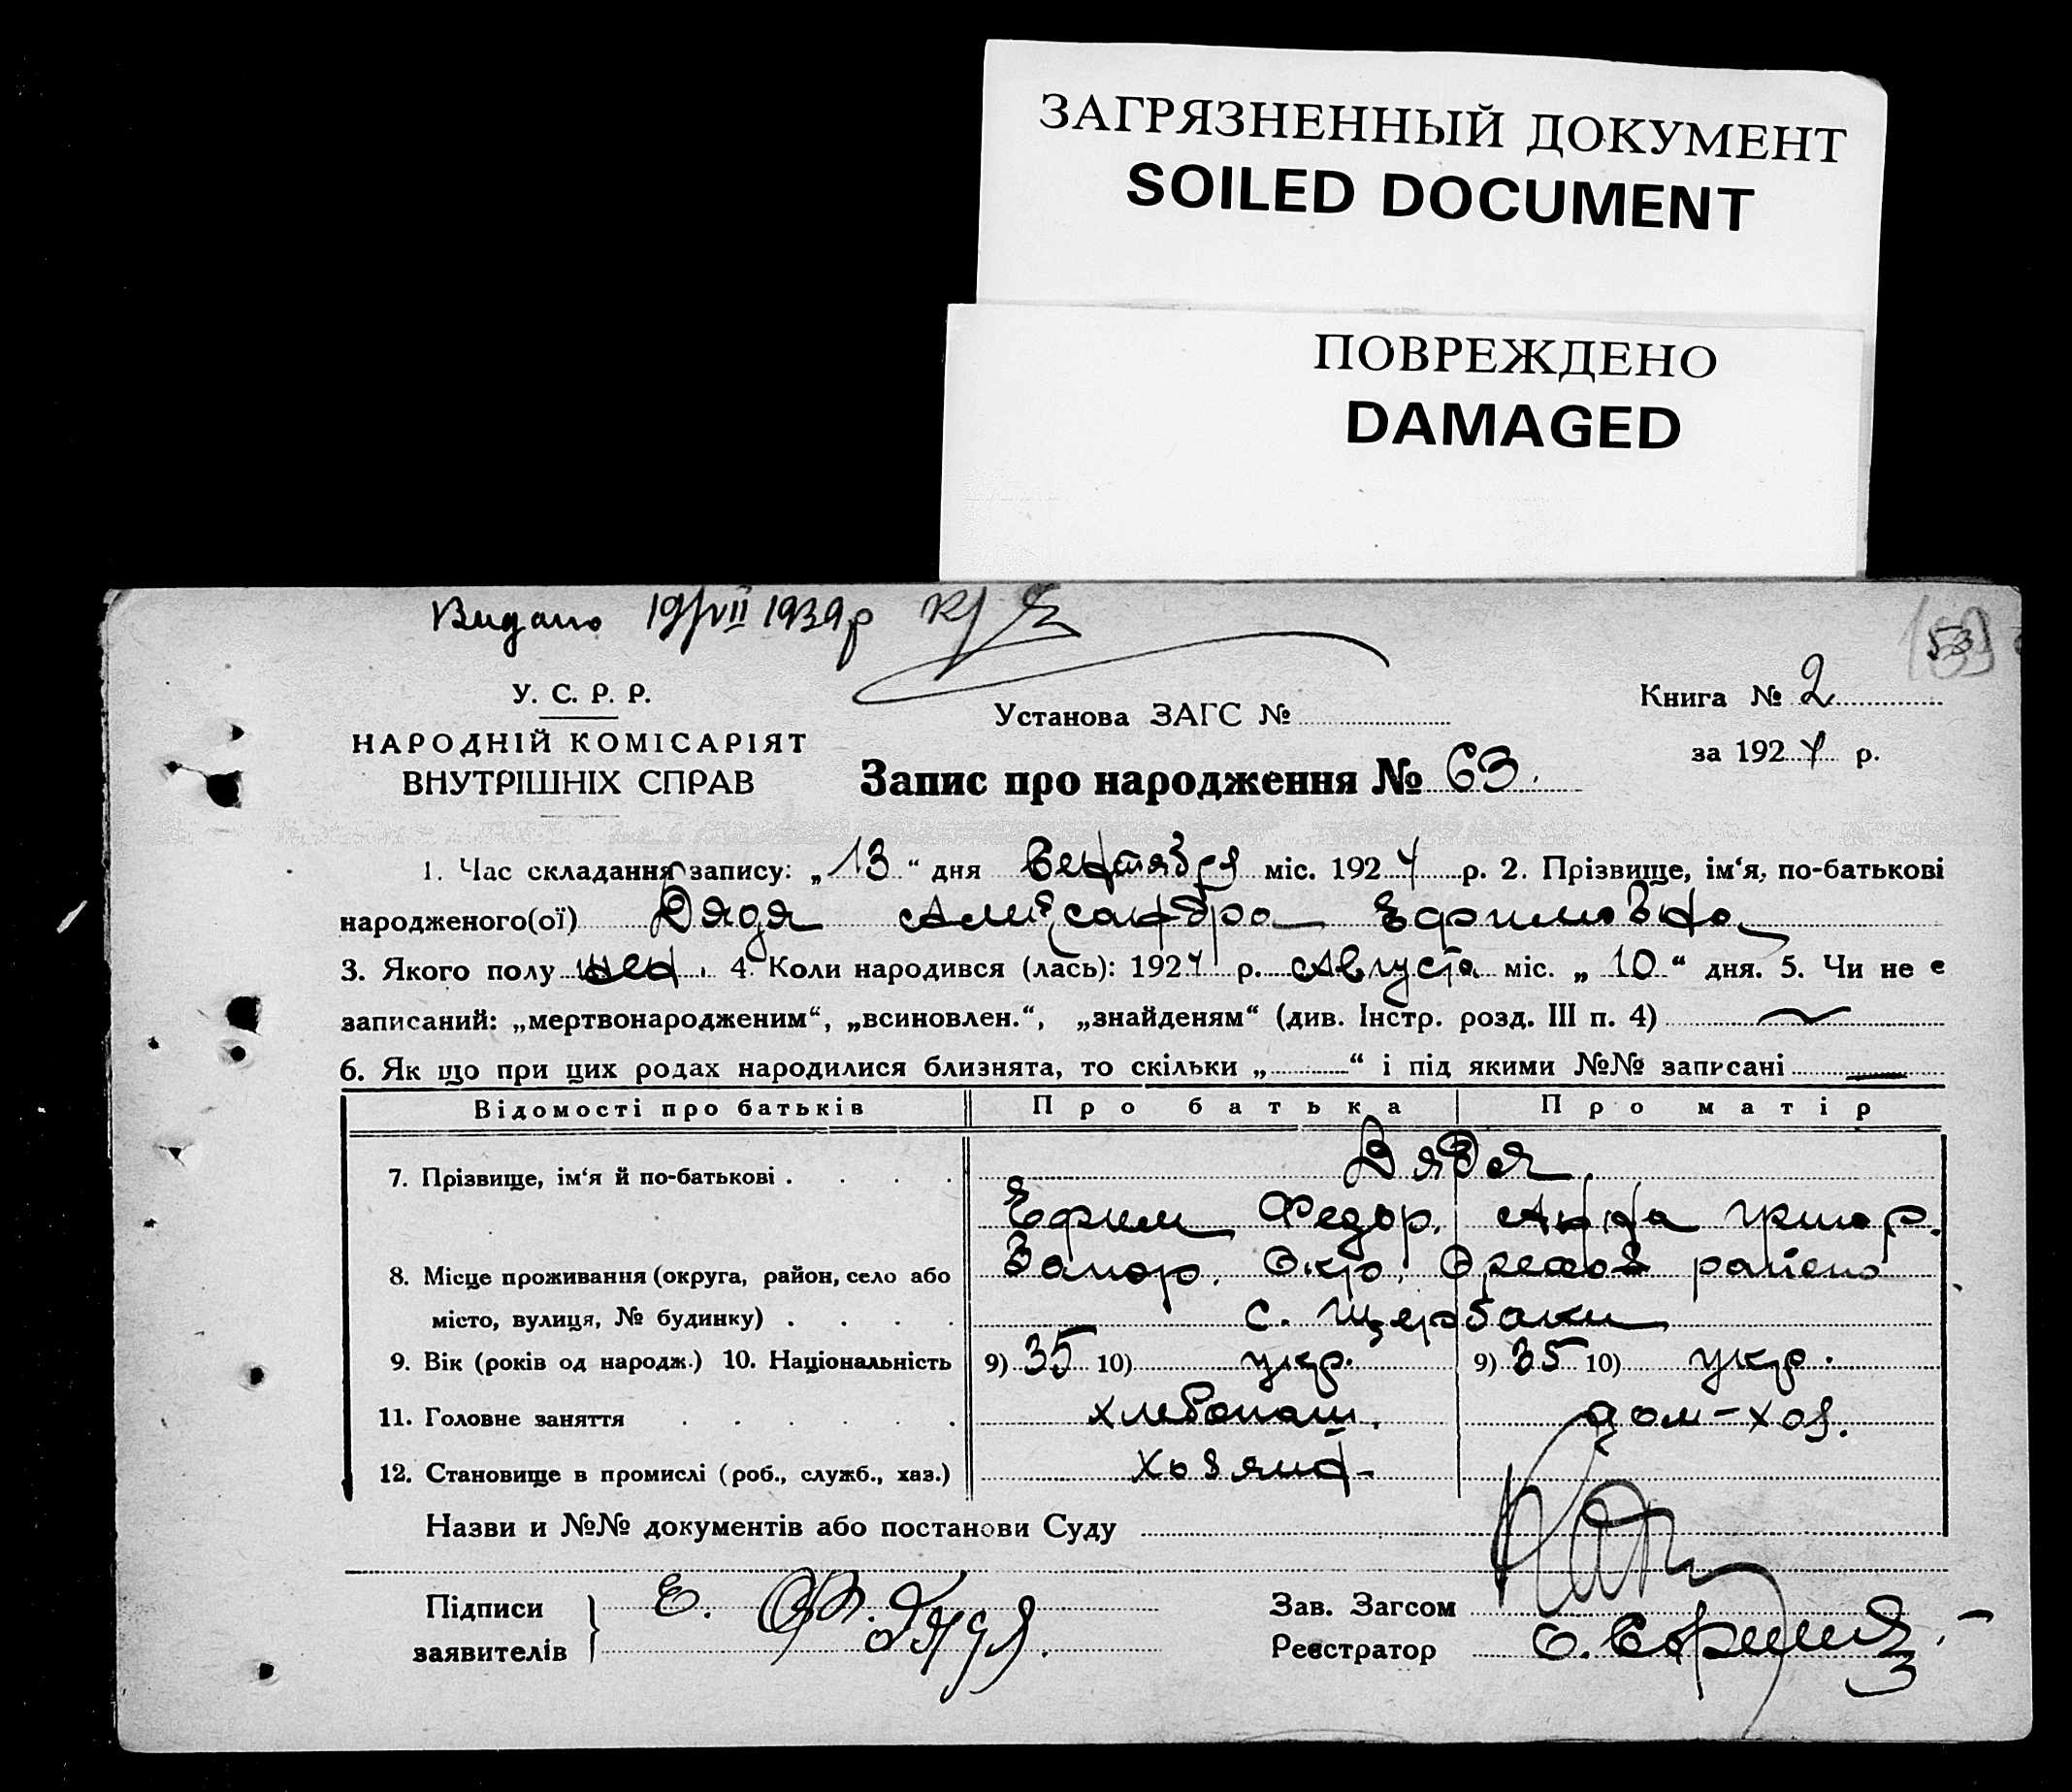 ЗАГРЯЗНЕННЫЙ ДОКУМЕНТ
SOILED DOCUMENT
ПОВРЕЖДЕНО
DAMAGED
Видано 19/VII 1939 р
53
У. С. Р. Р.
НАРОДНІЙ КОМІСАРІЯТ
ВНУТРІШНІХ СПРАВ
Установа ЗАГС №
Книга № 2
за 1927 р.
Запис про народження № 63.
1. Час складання запису: „ 13 “ дня Сентября міс. 1927 р. 2. Прізвище, ім‘я, по-батькові
народженого(ої) Дядя Александра Ефимовна
3. Якого полу жен. 4. Коли народився (лась): 1927 р. Августа міс. „ 10 “ дня. 5. Чи не є
записаний: „мертвонародженим“, „всиновлен.“, „знайденям“ (див. Інстр. розд. III п. 4)
6. Як що при цих родах народилися близнята, то скільки „ “ і під якими №№ записані —
Відомості про батьків Про батька Про матір
7. Прізвище, ім‘я й по-батькові . . . . Дядя.
Ефим Федор. Анна Григор.
8. Місце проживання (округа, район, село або Запор. Окр. Орехов района
місто, вулиця, № будинку) . . . . с. Щербаки
9. Вік (років од народж.) 10. Національність 9) 35 10) укр. 9) 35 10) укр.
11. Головне заняття . . . . . . хлебопаш. дом-хоз.
12. Становище в промислі (роб., служб., хаз.) хозяин-
Назви и №№ документів або постанови Суду
Підписи Е. Ф. Дядя. Зав. Загсом
заявителів Реєстратор